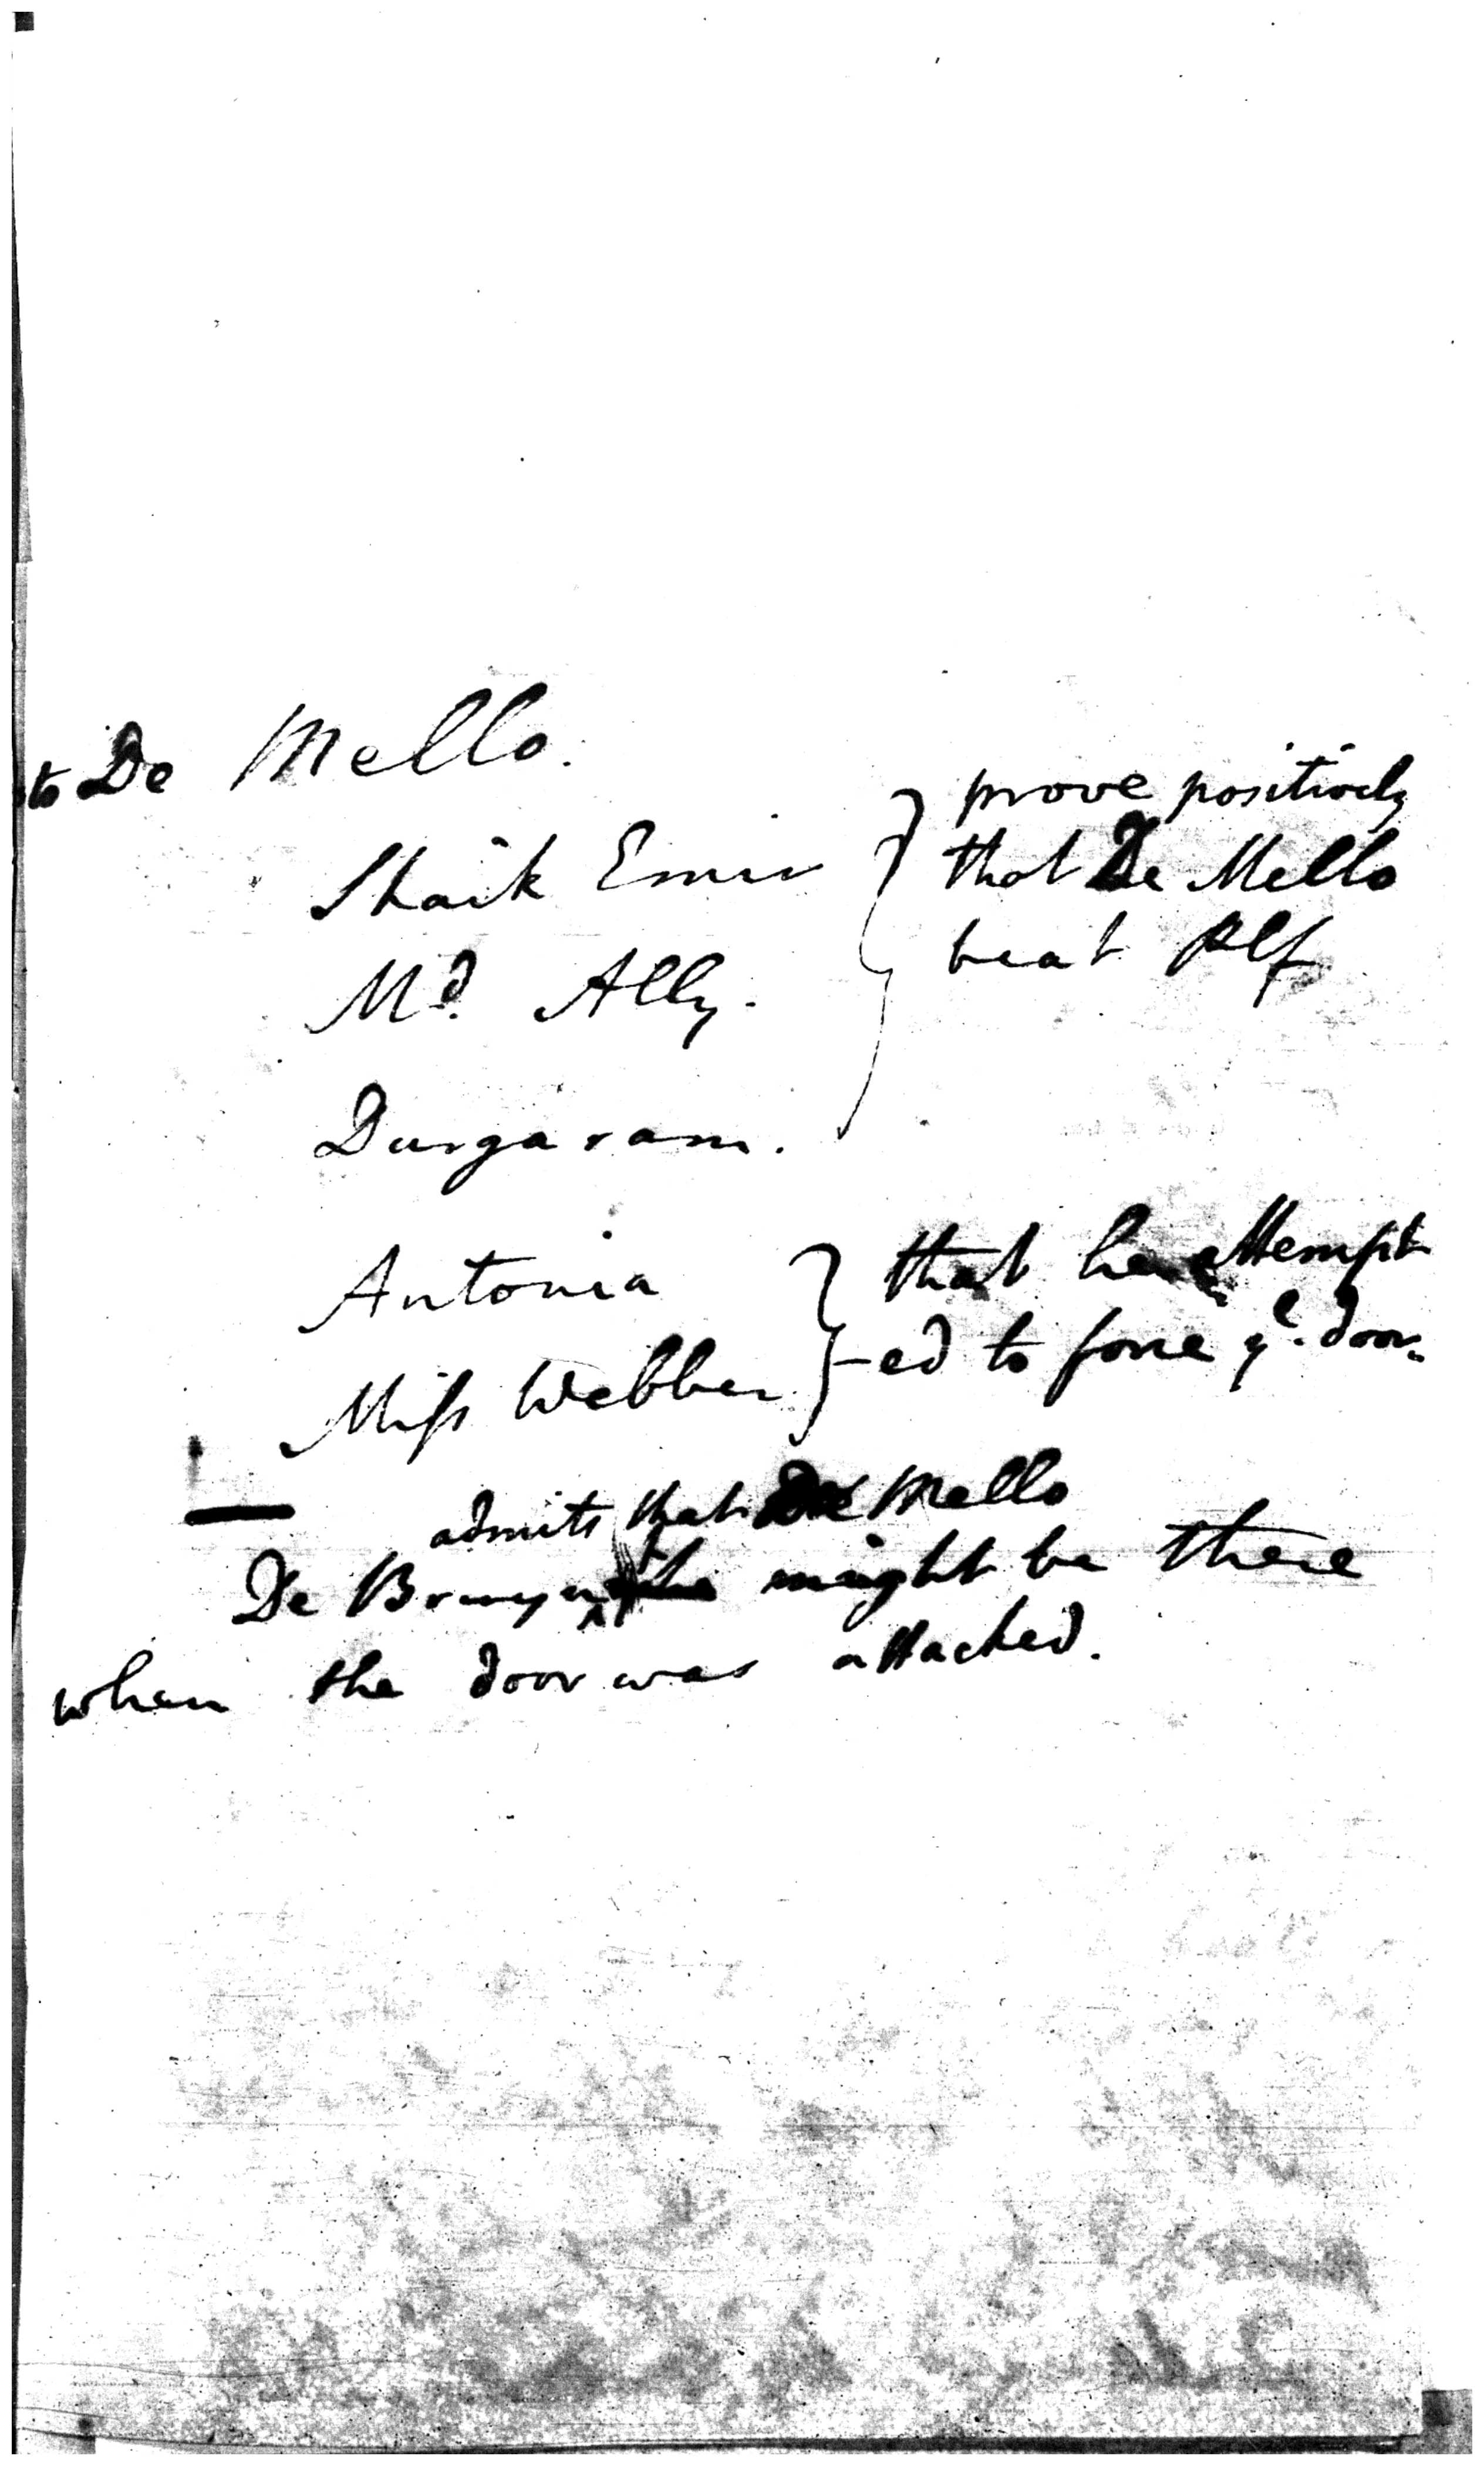 to De Mello.
Shaik Emir } prove positively
that De Mello
Md. Ally. beat Plf
Durgaram.
Antonia } that he attempt
Miss Webber } -ed to force ye. door.
admits that De Mello
De Bruyn might be there
when the door was attacked.